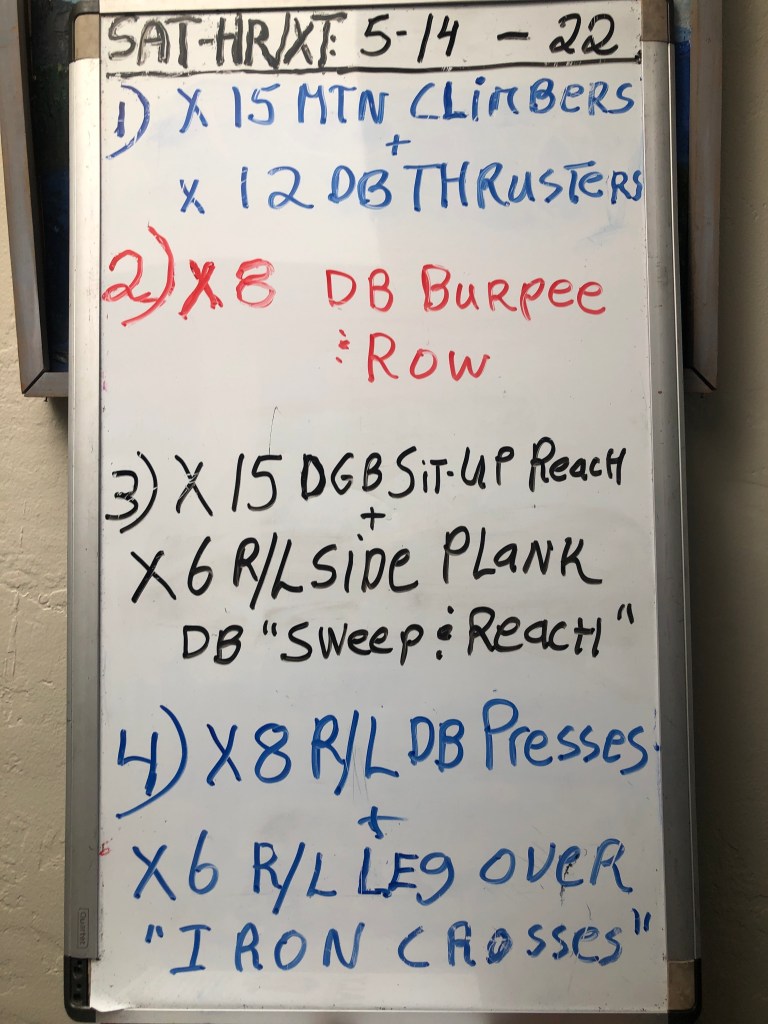 SAT-HR/XT: 5-14 - 22
1) X 15 MTN CLIMBERS
+
X 12 DB THRUSTERS
2) X8 DB BURPEE
& ROW
3) X 15 DGB SIT-UP REACH
+
X 6 R/L SIDE PLANK
DB "SWEEP & REACH"
4) X8 R/L DB PRESSES
+
X6 R/L LEG OVER
"IRON CROSSES"
Quartet